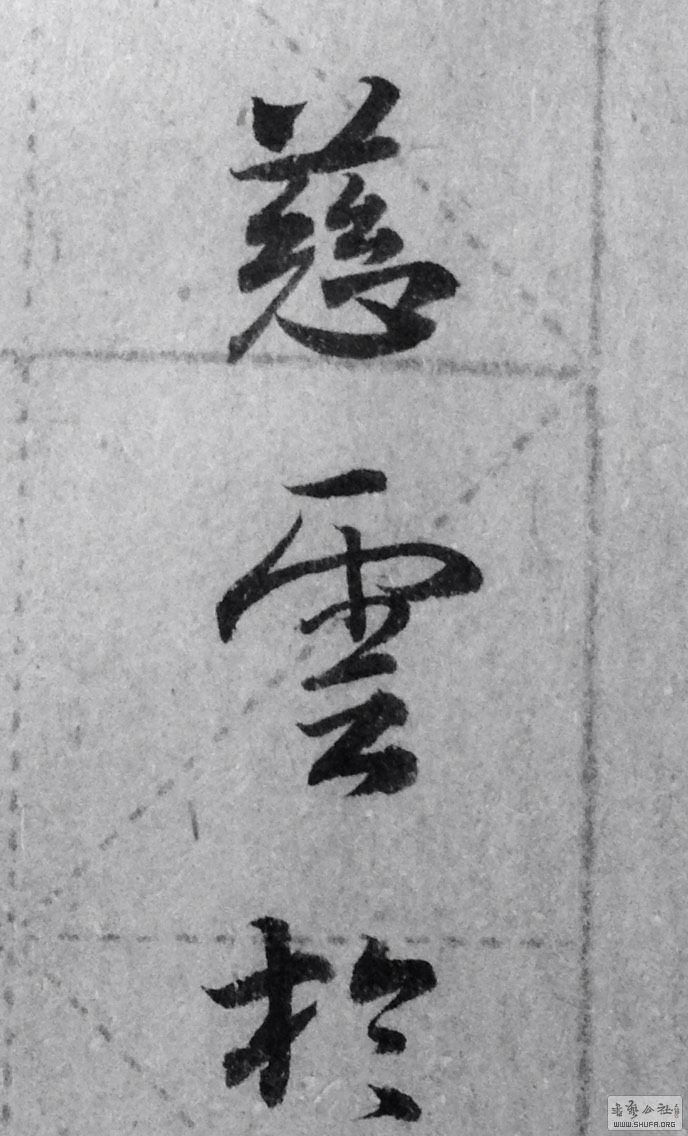 慈雲於
書藝公社
WWW.SHUFA.ORG